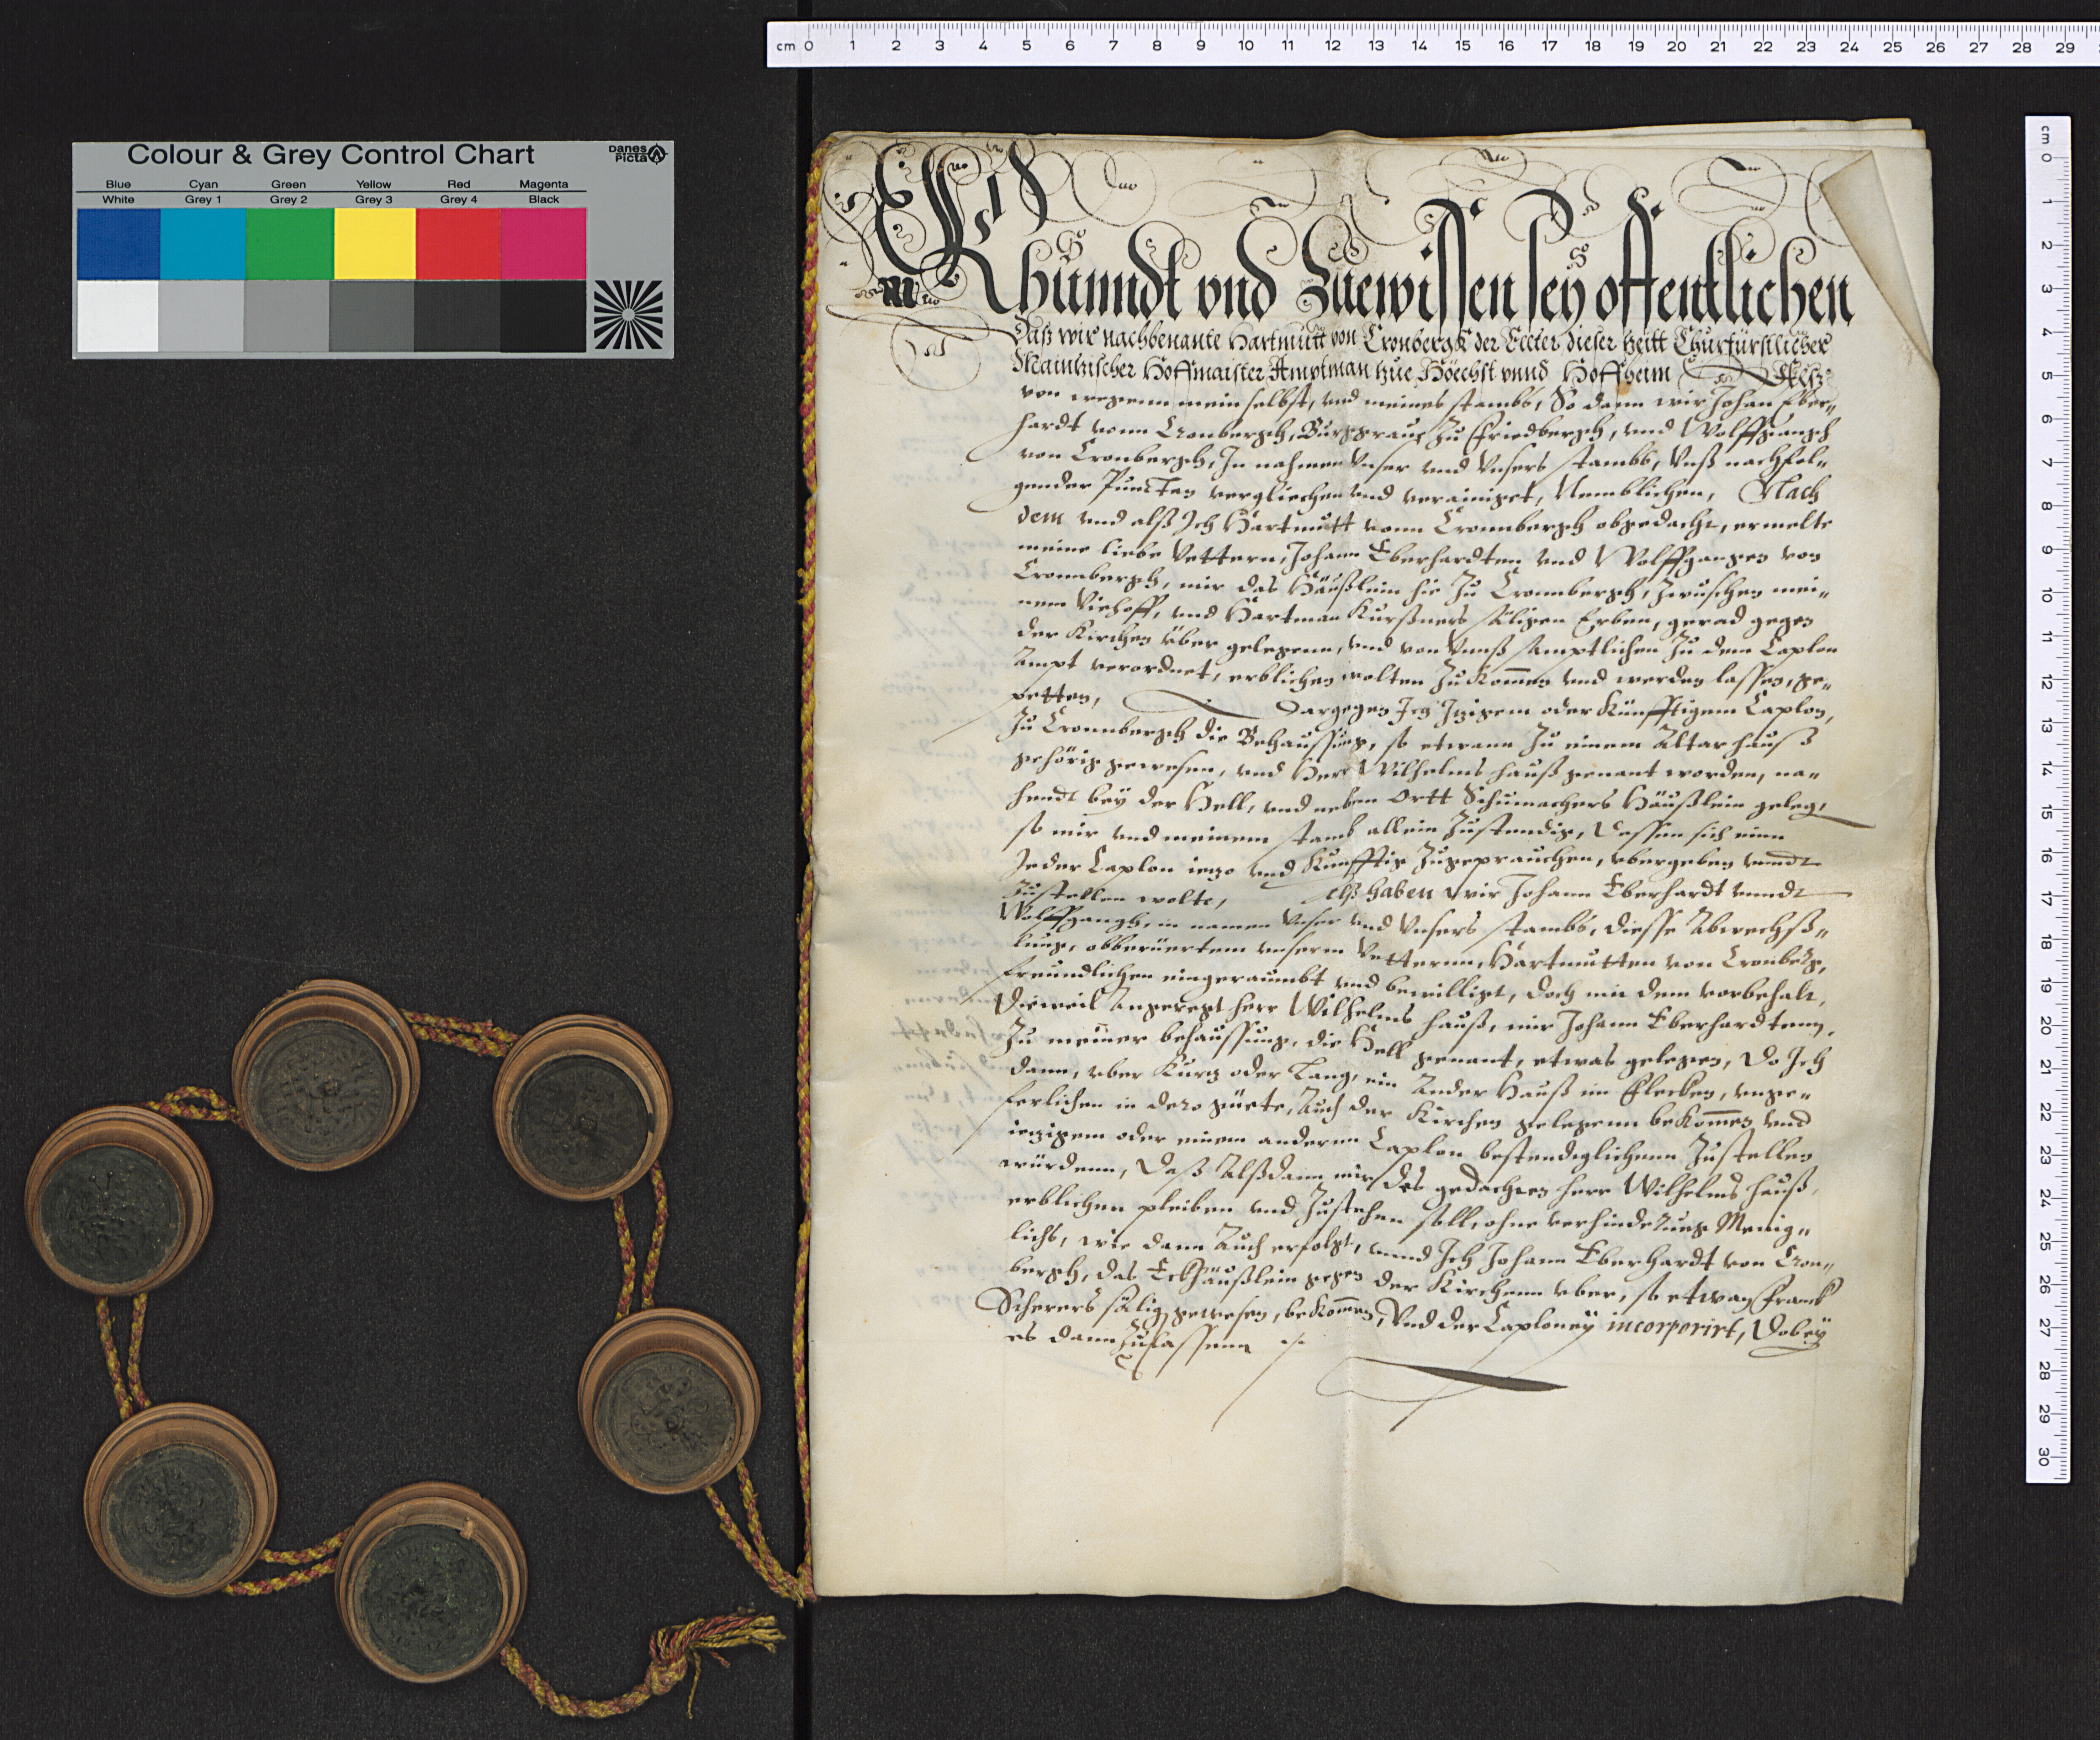 Colour & Grey Control Chart
DANES PICTA
Blue Cyan Green Yellow Red Magenta
White Grey 1 Grey 2 Grey 3 Grey 4 Black
cm 0 1 2 3 4 5 6 7 8 9 10 11 12 13 14 15 16 17 18 19 20 21 22 23 24 25 26 27 28 29
Khunndt vnd Zuewissen sey offentlichen
Daß wir nachbenante Hartmutt von Cronbergk der Elter dieser zeitt Churfürstlicher
Maintzischer Hoffmaister Amptman zue Höechst vnnd Hoffheim
von wegenn mein selbst, vnd meines stambs, So dann wir Johan Eber„
hardt vonn Cronbergh, Burggraue zu Friedbergh, vnd Wolffgangh
von Cronbergh, In nahmen Vnser vnd Vnsers stambs, Vnß nachfol„
gender Puncten vergliechen vnd verainiget, Nemblichen, Nach
dem vnd alß Ich Hartmutt vonn Cronnbergh obgedacht, ermelte
meine liebe Vettern, Johann Eberhardten vnd Wolffgangen von
Cronnbergh, mir das Häußlein hie zu Cronnbergh, zwuschen mei„
nem Viehoff, vnd Hartman Kurßners säligen Erben, gerad gegen
der Kirchen über gelegenn, vnd von Vnnß samptlichen zu dem Caplon
Ampt verordnet, erblichen wolten zukommen vnd werden lassen, ge„
petten, Dargegen Ich Itzigem oder Künfftigem Caplon,
zu Cronnbergh die Behaussung, so etwann zu einem Altar hauß
gehörig gewesen, vnd Herr Wilhelms hauß genant worden, na„
hendt bey der Hell, vnd neben Ortt Schumachers Häußlein geleg,
so mir vnd meinem stamb allein zustendig, Dessen sich einn
Jeder Caplon ietzo vnd Kunfftig zugeprauchen, vbergeben vnndt
zustellen wolte, Alß haben wir Johann Eberhardt vnndt
Wolffgangh, in namen Vnser vnd Vnsers stambs, diesse Abwechß„
lung, obberüertem vnserm Vetternn, Hartmutten von Cronberg,
freundlichen eingeraumbt vnd bewilligt, doch mit dem vorbehalt,
Dieweil Angeregt herr Wilhelms hauß, mir Johann Eberhardtenn,
zu meiner behaussung, die Hell genant, etwas gelegen, Do Ich
dann, vber Kurtz oder Lang, ein Ander Hauß im Flecken, vnge„
ferlichen in dero güete, Auch der Kirchen gelegenn bekommen vnd
ietzigem oder einem anderm Caplon bestendiglichenn zustellen
würdenn, Daß Alßdann mir das gedachten herr Wilhelms hauß,
erblichen pleiben vnd zustehen soll, ohne verhinderung Menig„
lichs, wie dann Auch erfolgt, vnnd Ich Johann Eberhardt von Cron„
bergh, das Eckhäußlein gegen der Kirchenn vber, so etwan Franck
Scherers sälig gewesen, bekommen, Vnd der Caploney incorporirt, Dobey
es dann zulassenn
cm 0 1 2 3 4 5 6 7 8 9 10 11 12 13 14 15 16 17 18 19 20 21 22 23 24 25 26 27 28 29 30